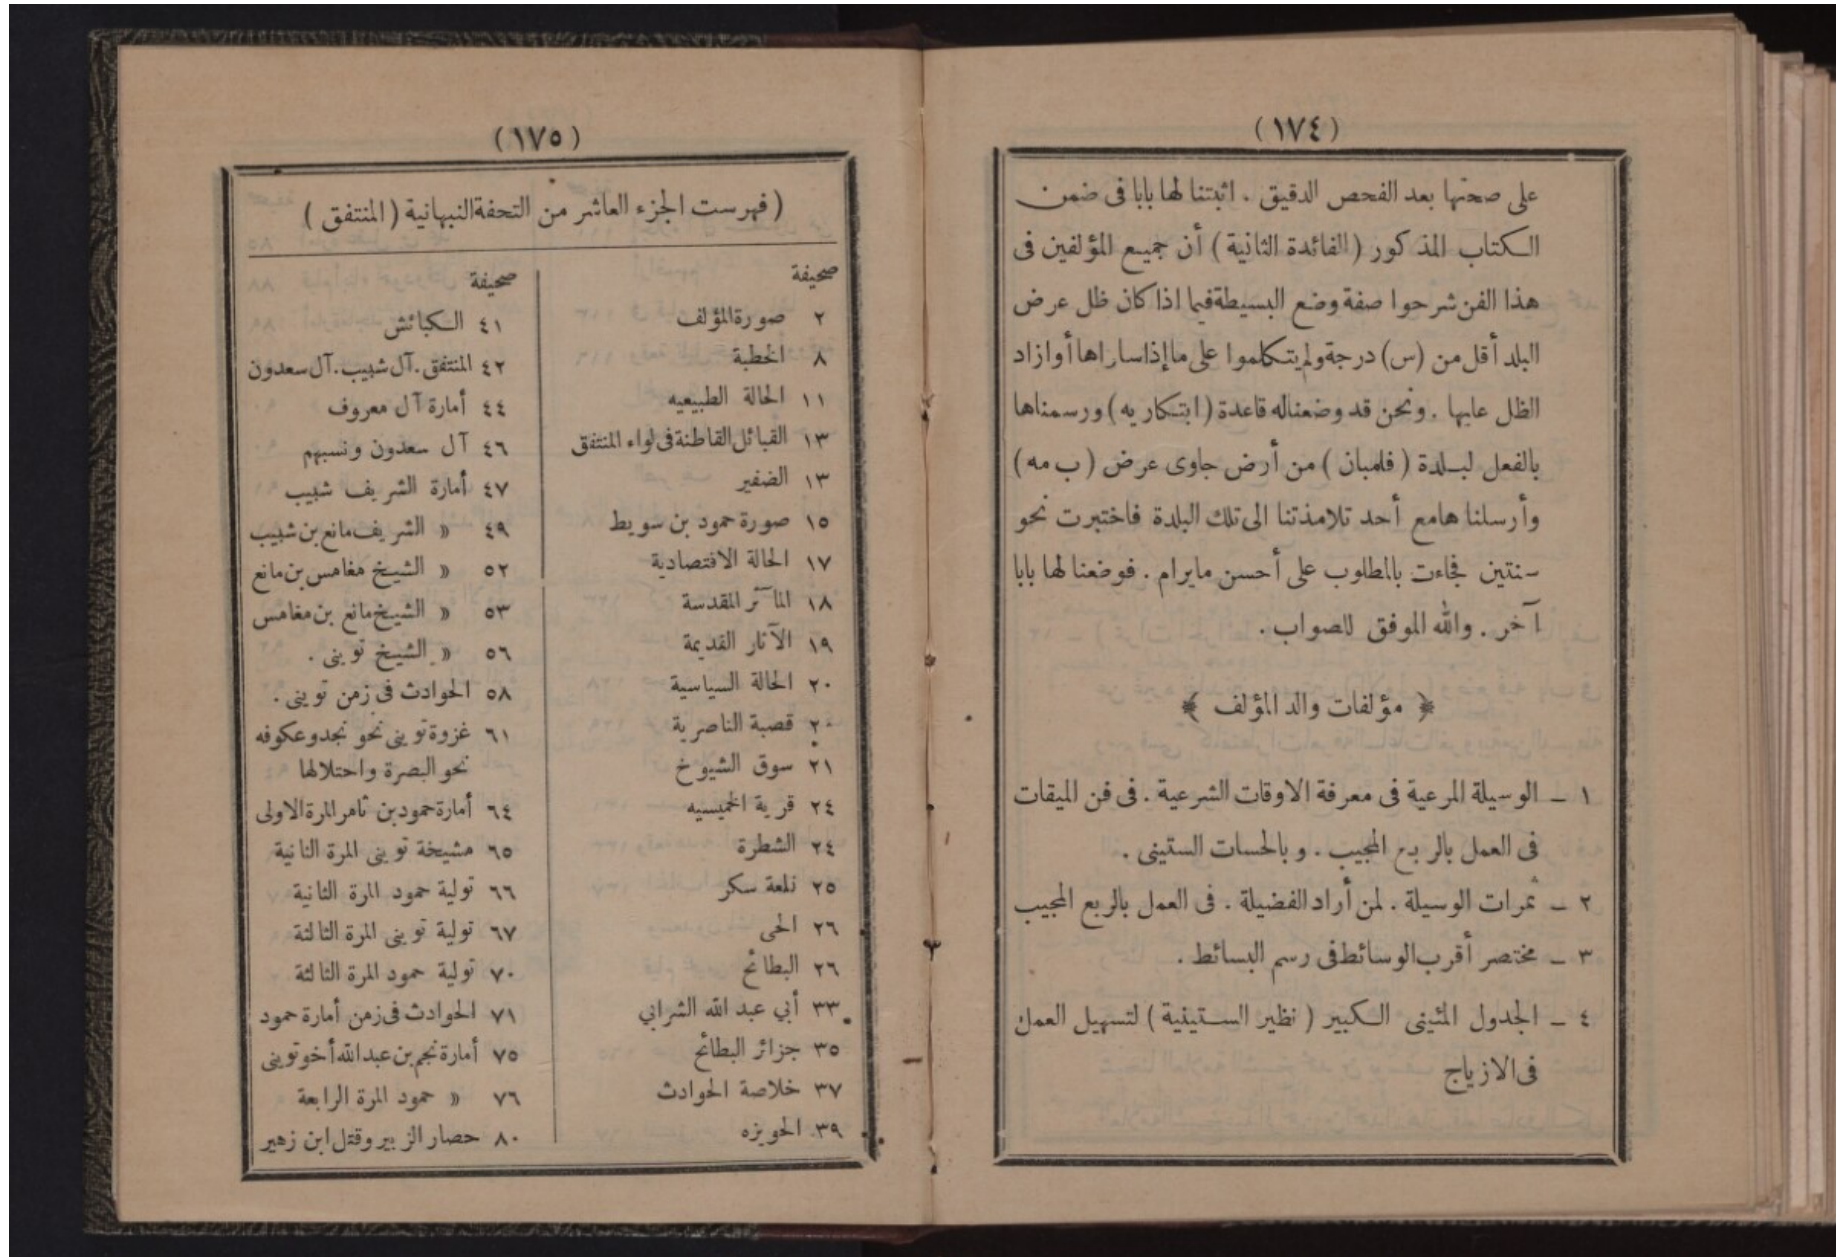 (١٧٤)
على صحتها بعد الفحص الدقيق . اثبتنا لها بابا فى ضمن
الكتاب المذكور (الفائدة الثانية) أن جميع المؤلفين فى
هذا الفن شرحوا صفة وضع البسيطة فيما اذا كان ظل عرض
البلد أقل من (س) درجة ولم يتكلموا على ما إذا ساراها أوازاد
الظل عليها . ونحن قد وضعنا له قاعدة (ابتكاريه) ورسمناها
بالفعل لبلدة (فلمبان) من أرض جاوى عرض (ب مه)
وأرسلناها مع أحد تلامذتنا الى تلك البلدة فاختبرت نحو
سنتين فجاءت بالمطلوب على أحسن مايرام . فوضعنا لها بابا
آخر . والله الموفق للصواب .
﴿ مؤلفات والد المؤلف ﴾
١ ـ الوسيلة المرعية فى معرفة الاوقات الشرعية . فى فن الميقات
فى العمل بالربع المجيب . وبالحسات الستينى .
٢ ـ ثمرات الوسيلة . لمن أراد الفضيلة . فى العمل بالربع المجيب
٣ ـ مختصر أقرب الوسائط فى رسم البسائط .
٤ ـ الجدول المئينى الكبير (نظير الستينية) لتسهيل العمل
فى الازياج
(١٧٥)
(فهرست الجزء العاشر من التحفة النبهانية (المنتفق)
صحيفة
٢ صورة المؤلف
٨ الخطبة
١١ الحالة الطبيعيه
١٣ القبائل القاطنة فى لواء المنتفق
١٣ الضفير
١٥ صورة حمود بن سويط
١٧ الحالة الاقتصادية
١٨ المآثر المقدسة
١٩ الآثار القديمة
٢٠ الحالة السياسية
٢٠ قصبة الناصرية
٢١ سوق الشيوخ
٢٤ قرية الخميسيه
٢٤ الشطرة
٢٥ قلعة سكر
٢٦ الحى
٢٦ البطائح
٣٣ أبي عبد الله الشرابي
٣٥ جزائر البطائح
٣٧ خلاصة الحوادث
٣٩ الحويزه
صحيفة
٤١ الكبائش
٤٢ المنتفق . آل شبيب . آل سعدون
٤٤ أمارة آل معروف
٤٦ آل سعدون ونسبهم
٤٧ أمارة الشريف شبيب
٤٩ » الشريف مانع بن شبيب
٥٢ » الشيخ مغامس بن مانع
٥٣ » الشيخ مانع بن مغامس
٥٦ » الشيخ ثوينى .
٥٨ الحوادث فى زمن ثوينى .
٦١ غزوة ثوينى نحو نجد وعكوفه
نحو البصرة واحتلالها
٦٤ أمارة حمود بن ثامر المرة الاولى
٦٥ مشيخة ثوينى المرة الثانية
٦٦ تولية حمود المرة الثانية
٦٧ تولية ثوينى المرة الثالثة
٧٠ تولية حمود المرة الثالثة
٧١ الحوادث فى زمن أمارة حمود
٧٥ أمارة نجم بن عبد الله أخو ثوينى
٧٦ » حمود المرة الرابعة
٨٠ حصار الزبير وقتل ابن زهير